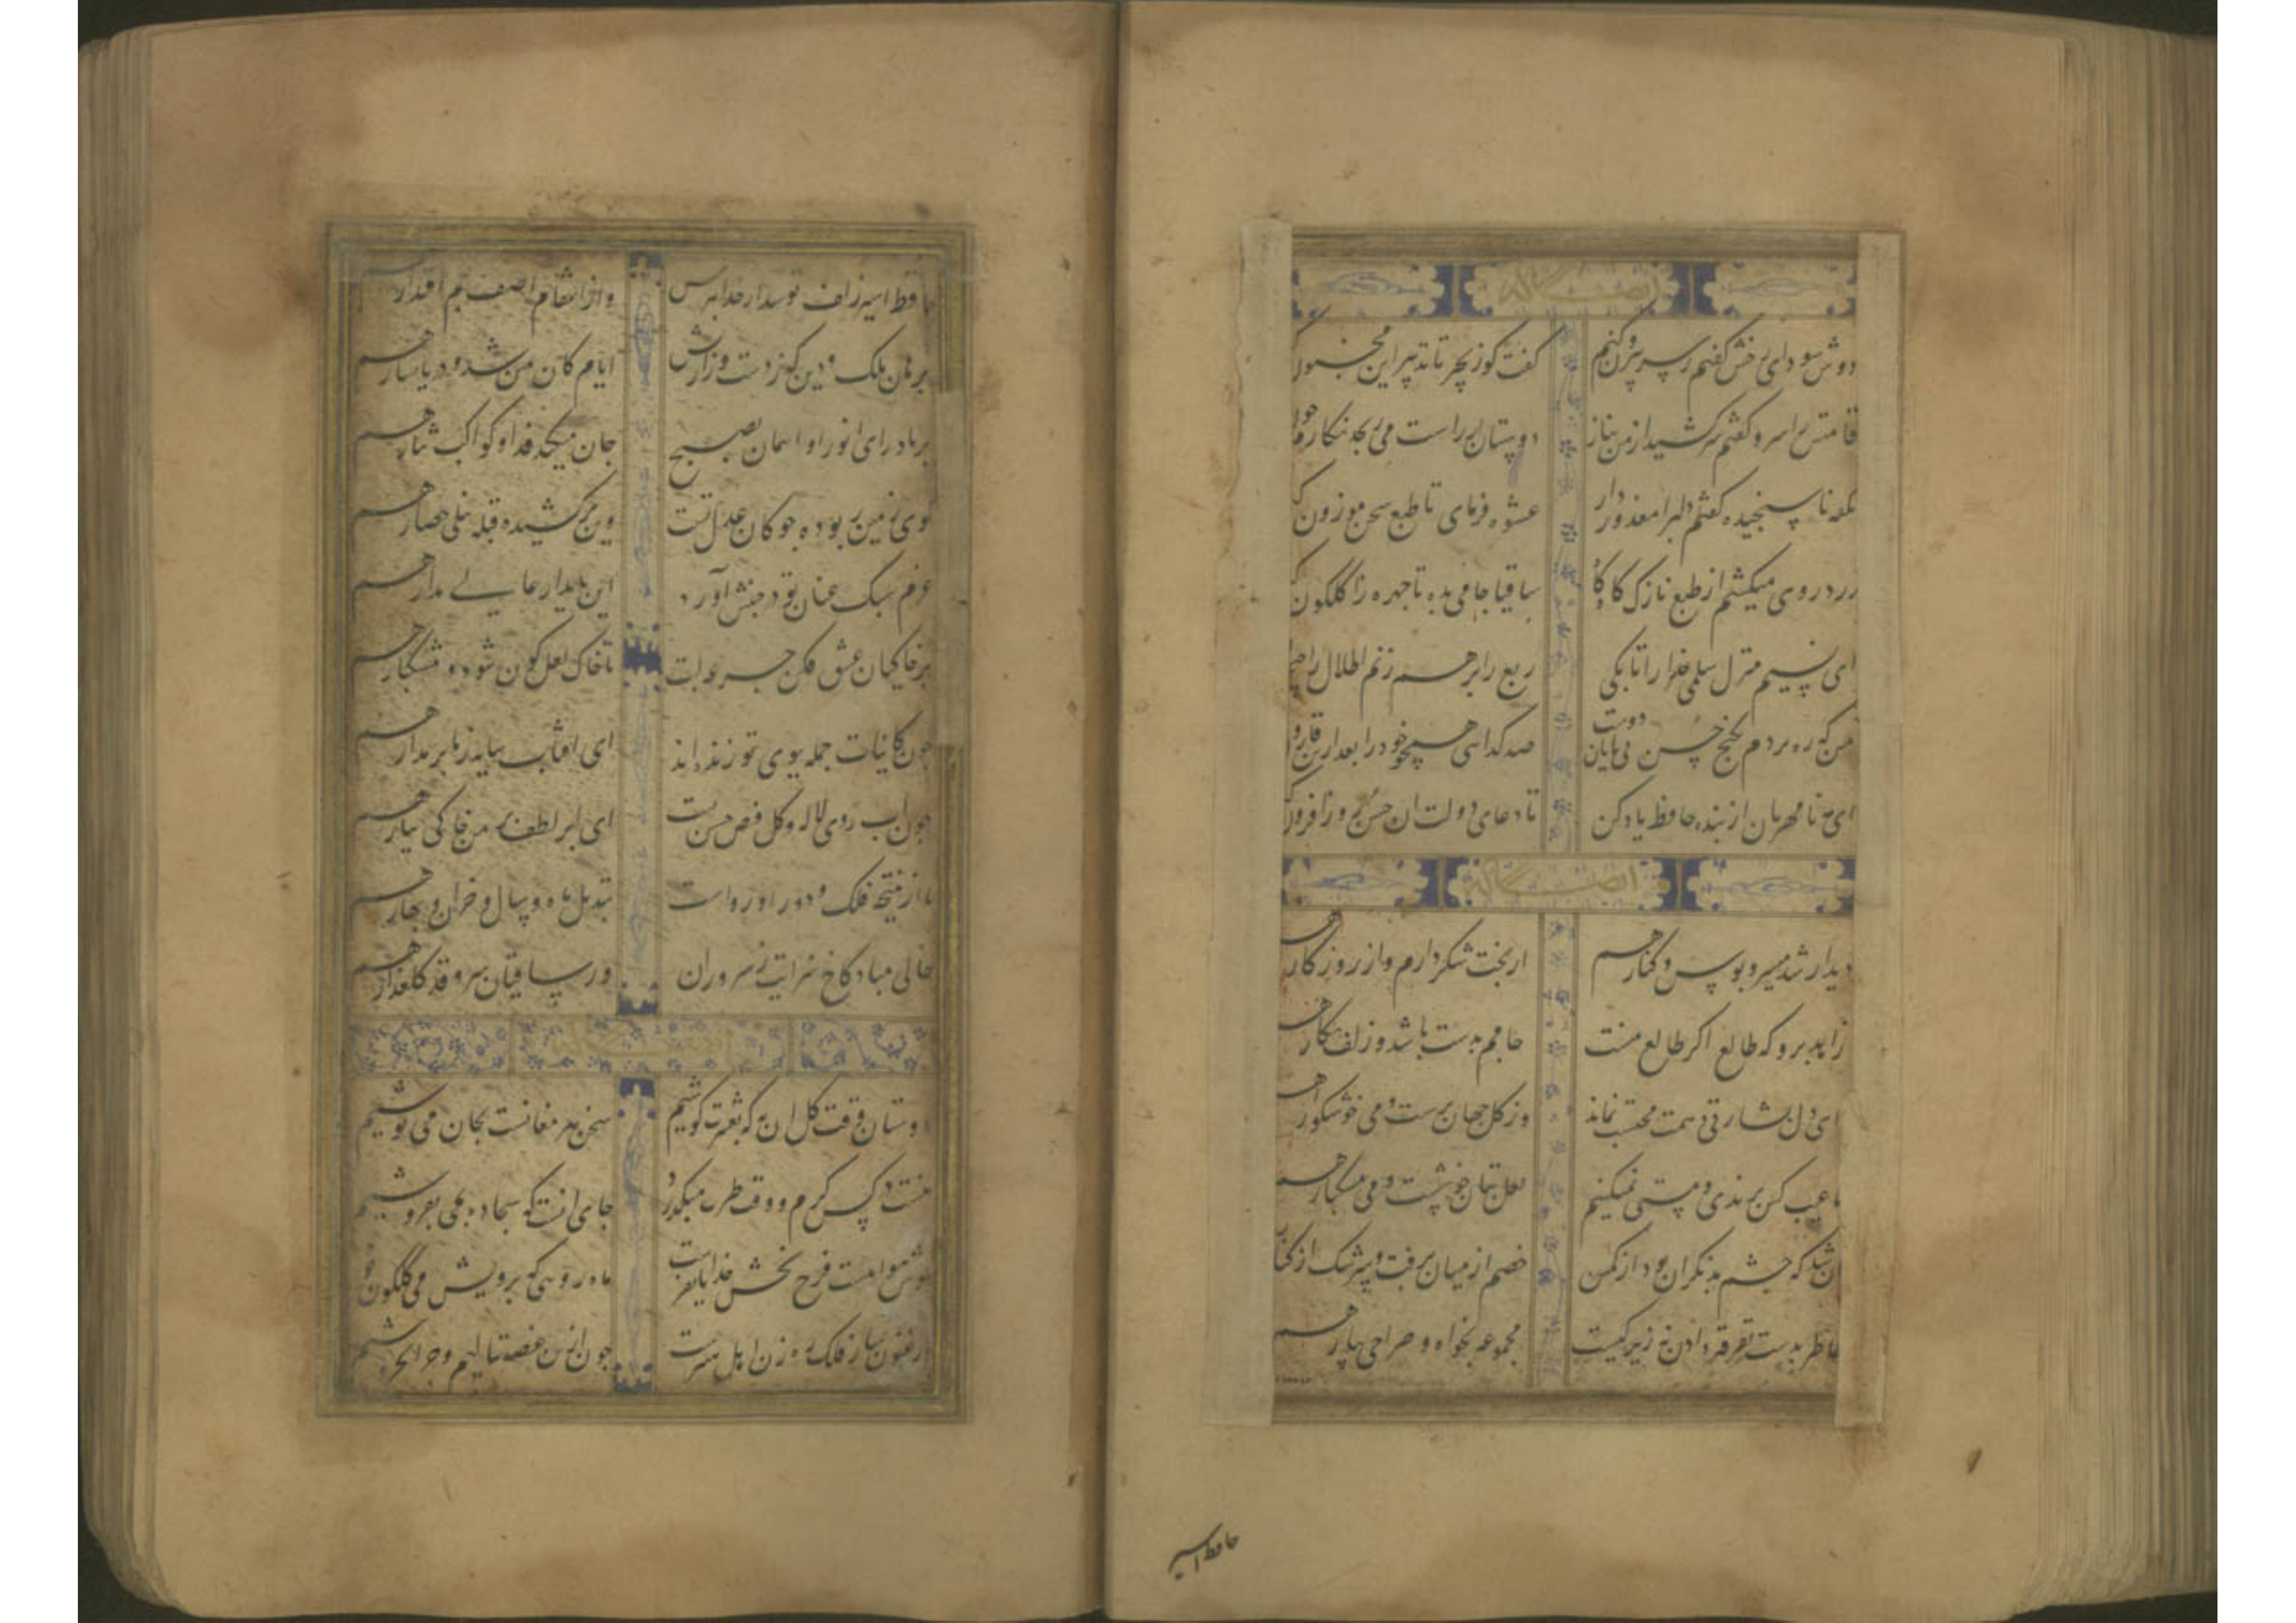 ایضاً له
دوش سودای رخش کفتم ز سر بیرون کنم کفت کو زنجیر تا تدبیر این مجنون
قامتش را سرو کفتم سر کشید از من بناز دوستان از راست می رنجد نکارم چون
نکته ناسنجیده کفتم دلبرا معذور دار عشوه فرمای تا طبع سخن موزون
زرد روی میکشم از طبع نازک کاه کاه ساقیا جامی بده تا چهره را کلکون
ای نسیم منزل سلمی خدا را تا بکی ربع را برهم زنم اطلال را
من که ره بردم بکنج حسن بی پایان دوست صد کدای همچو خود را بعد ازین قارون
ای مه نامهربان از بنده حافظ یاد کن تا دعای دولت آن حسن روزافزون
ایضاً له
دیدار شد میسر و بوس و کنار هم از بخت شکر دارم و از روزکار هم
زاهد برو که طالع اکر طالع منست جامم بدست باشد و زلف نکار هم
ای دل بشارتی دهمت محتسب نماند وز کل جهان پرست و می خوشکوار هم
ما عیب کس برندی و مستی نمیکنیم لعل بتان خوشست و می خوشکوار هم
آن شد که چشم بد نکران بود از کمین خصم از میان برفت و سرشک از کنار
خاطر بدست تفرقه دادن نه زیرکیست مجموعه بخواه و صراحی بیار هم
حافظ اسیر
حافظ اسیر زلف تو شد از خدا بترس واز انتقام آصف جم اقتدار هم
برهان ملک و دین که ز دست وزارتش ایام کان یمین شد و دریا یسار هم
بر یاد رای انور او آسمان بصبح جان میکند فدا و کواکب نثار هم
کوی زمین ربوده چوکان عدل تست وین برکشیده قبه نیلی حصار هم
عزم سبک عنان تو در جنبش آورد این پایدار عالی مدار هم
بر خاکیان عشق فکن جرعه لبت تا خاک لعل کون شود و مشکبار هم
چون کاینات جمله ببوی تو زنده اند ای آفتاب سایه ز ما برمدار هم
چون آب روی لاله و کل فیض حسن تست ای ابر لطف بر من خاکی ببار هم
تا از نتیجه فلک و دور او رواست تبدیل ماه و سال و خزان و بهار هم
خالی مباد کاخ سرایت ز سروران وز ساقیان سرو قد کلعذار هم
ایضاً له
دوستان وقت کل آن به که بعشرت کوشیم سخن پیر مغانست بجان می نوشیم
نیست در کس کرم و وقت طرب میکذرد چاره آنست که سجاده بمی بفروشیم
خوش هواییست فرح بخش خدایا بفرست ماه رویی که برویش می کلکون نوشیم
ارغنون ساز فلک رهزن اهل هنرست چون ازین غصه ننالیم و چرا نخروشیم